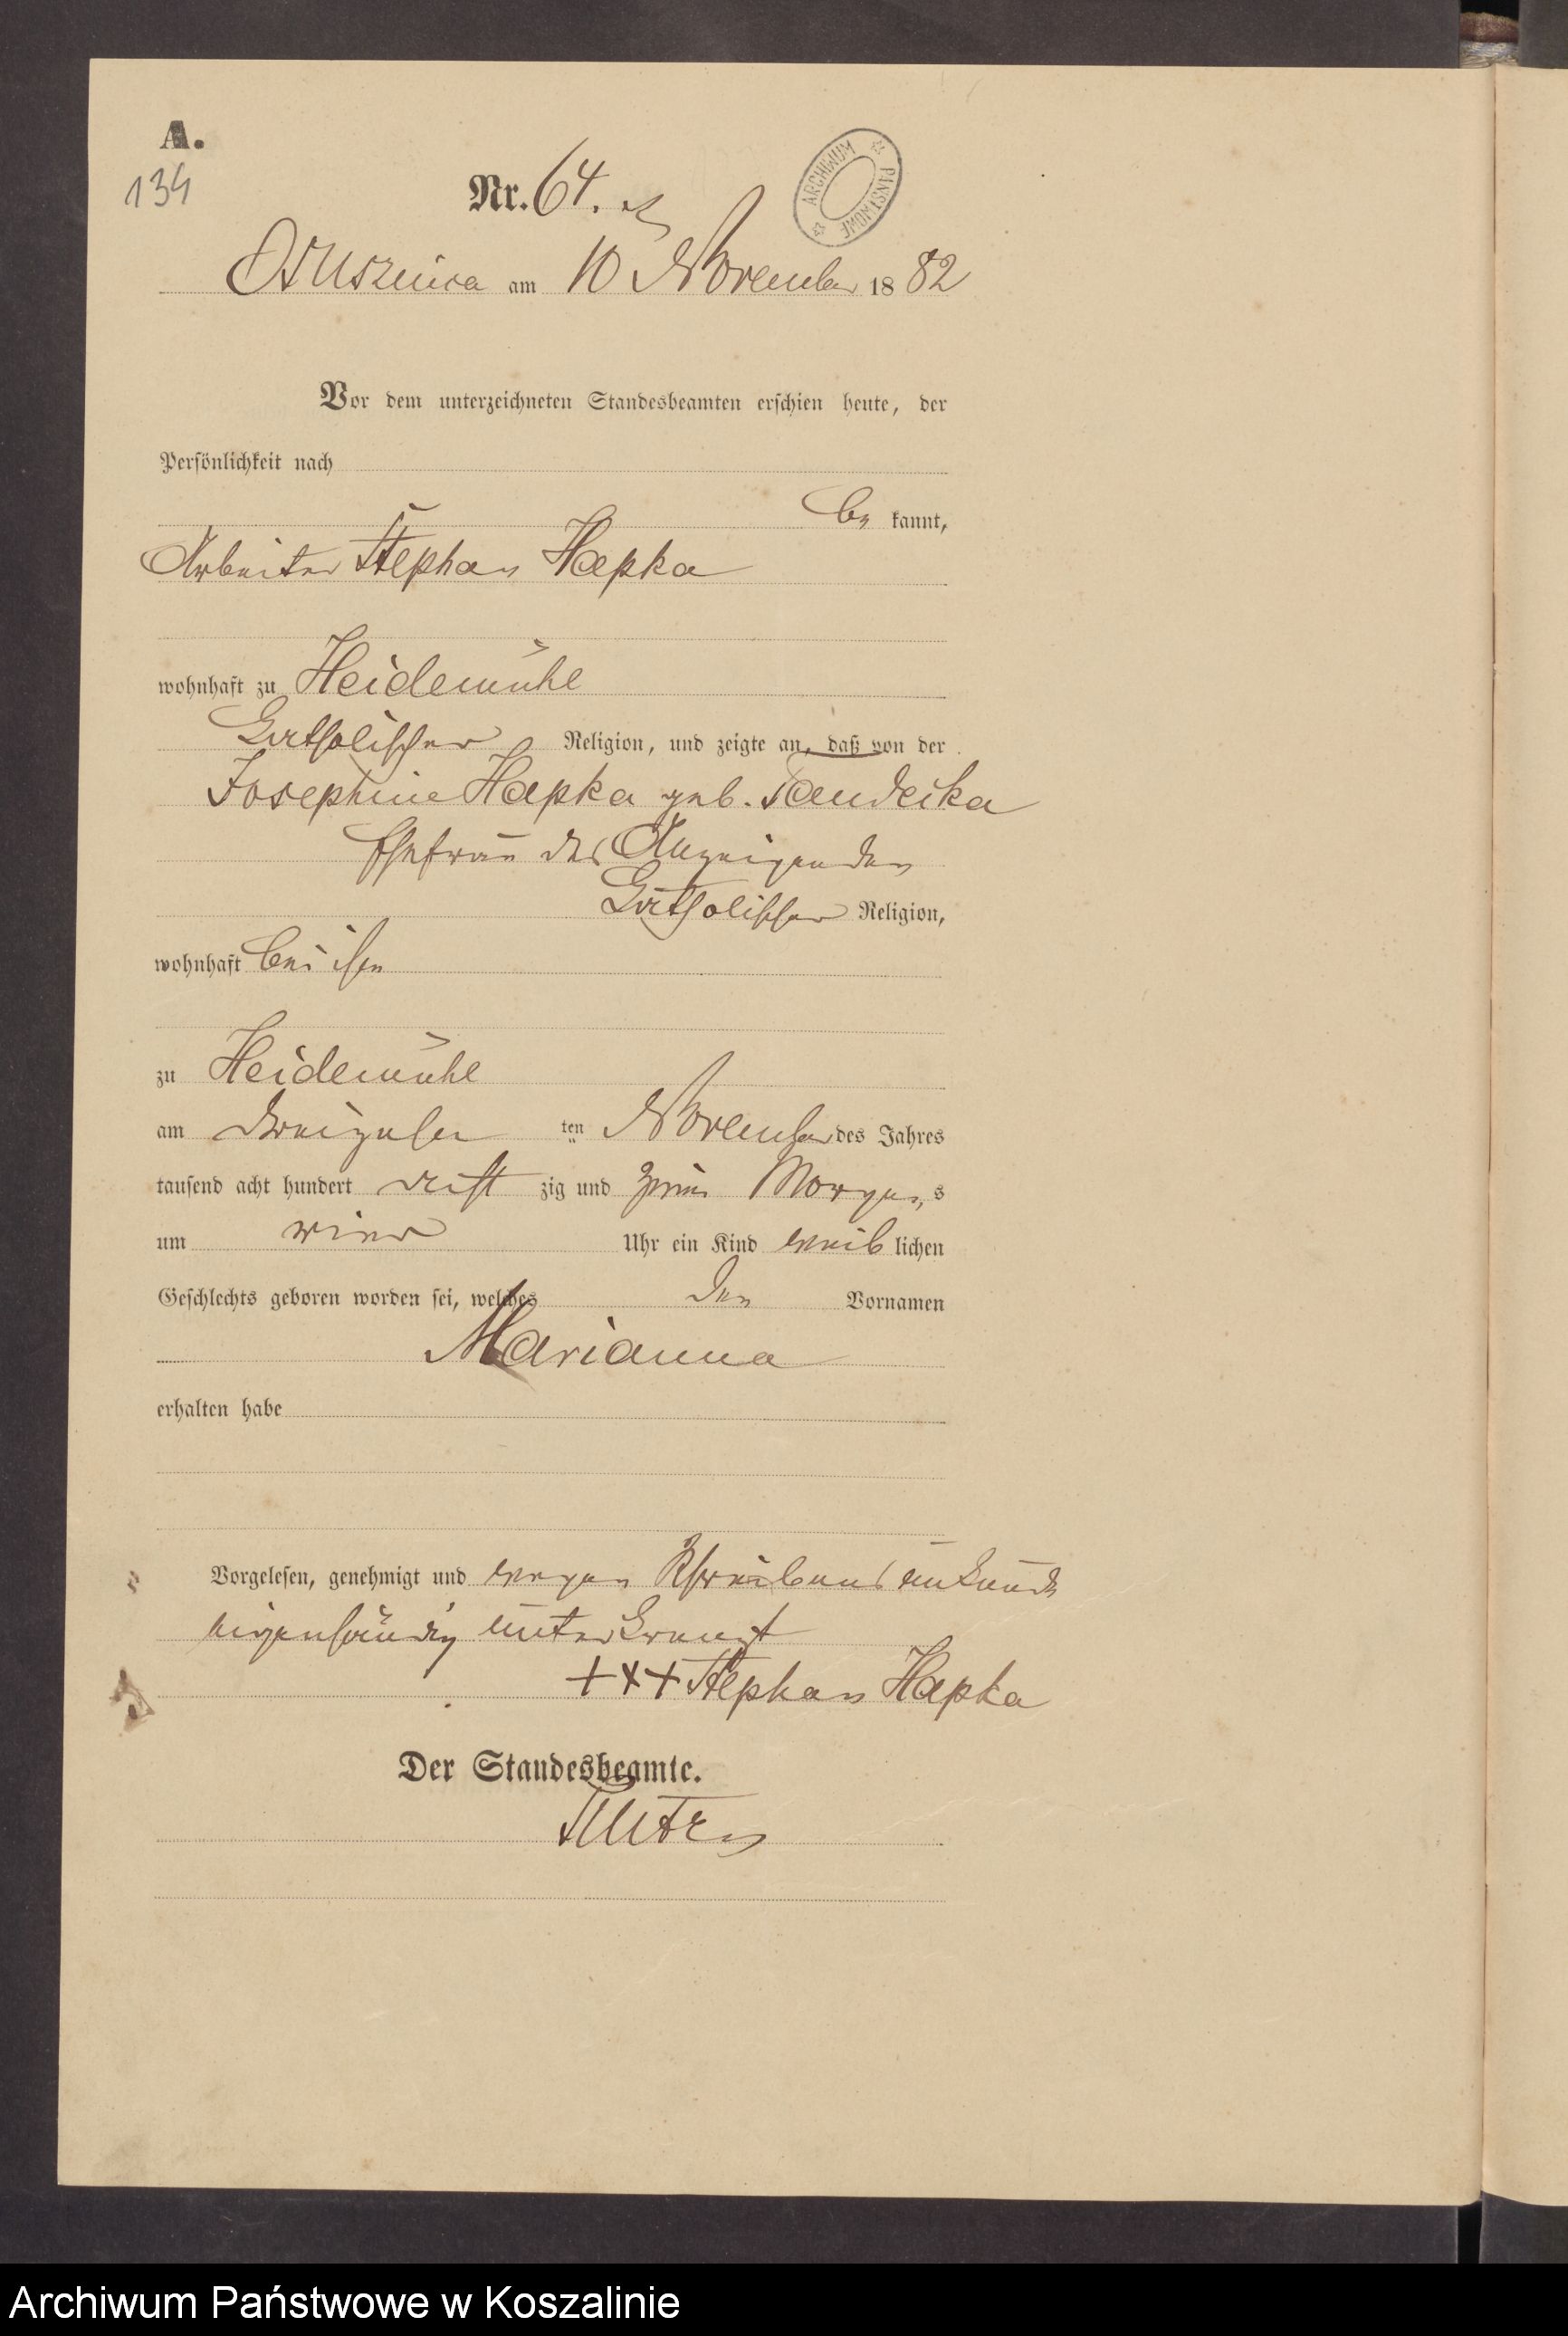 A.
134
Nr. 64.
ARCHIWUM PAŃSTWOWE
Ossusznica am 10 November 1882
Vor dem unterzeichneten Standesbeamten erschien heute, der
Persönlichkeit nach
be kannt,
Arbeiter Stephan Hapka
wohnhaft zu Heidemühl
katholischer Religion, und zeigte an, daß von der
Josephine Hapka geb.
Ehefrau des Anzeigenden
katholischer Religion,
wohnhaft bei ihm
zu Heidemühl
am ten November des Jahres
tausend acht hundert acht zig und zwei Morgens
um vier Uhr ein Kind weib lichen
Geschlechts geboren worden sei, welches den Vornamen
Marianna
erhalten habe
Vorgelesen, genehmigt und wegen Schreibensunkunde
eigenhändig unterkreuzt
+++ Stephan Hapka
Der Standesbeamte.
Archiwum Państwowe w Koszalinie